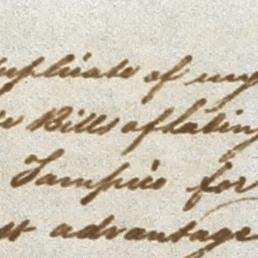 uplicate of my
Bills of Lading
Tampico for
st advantage